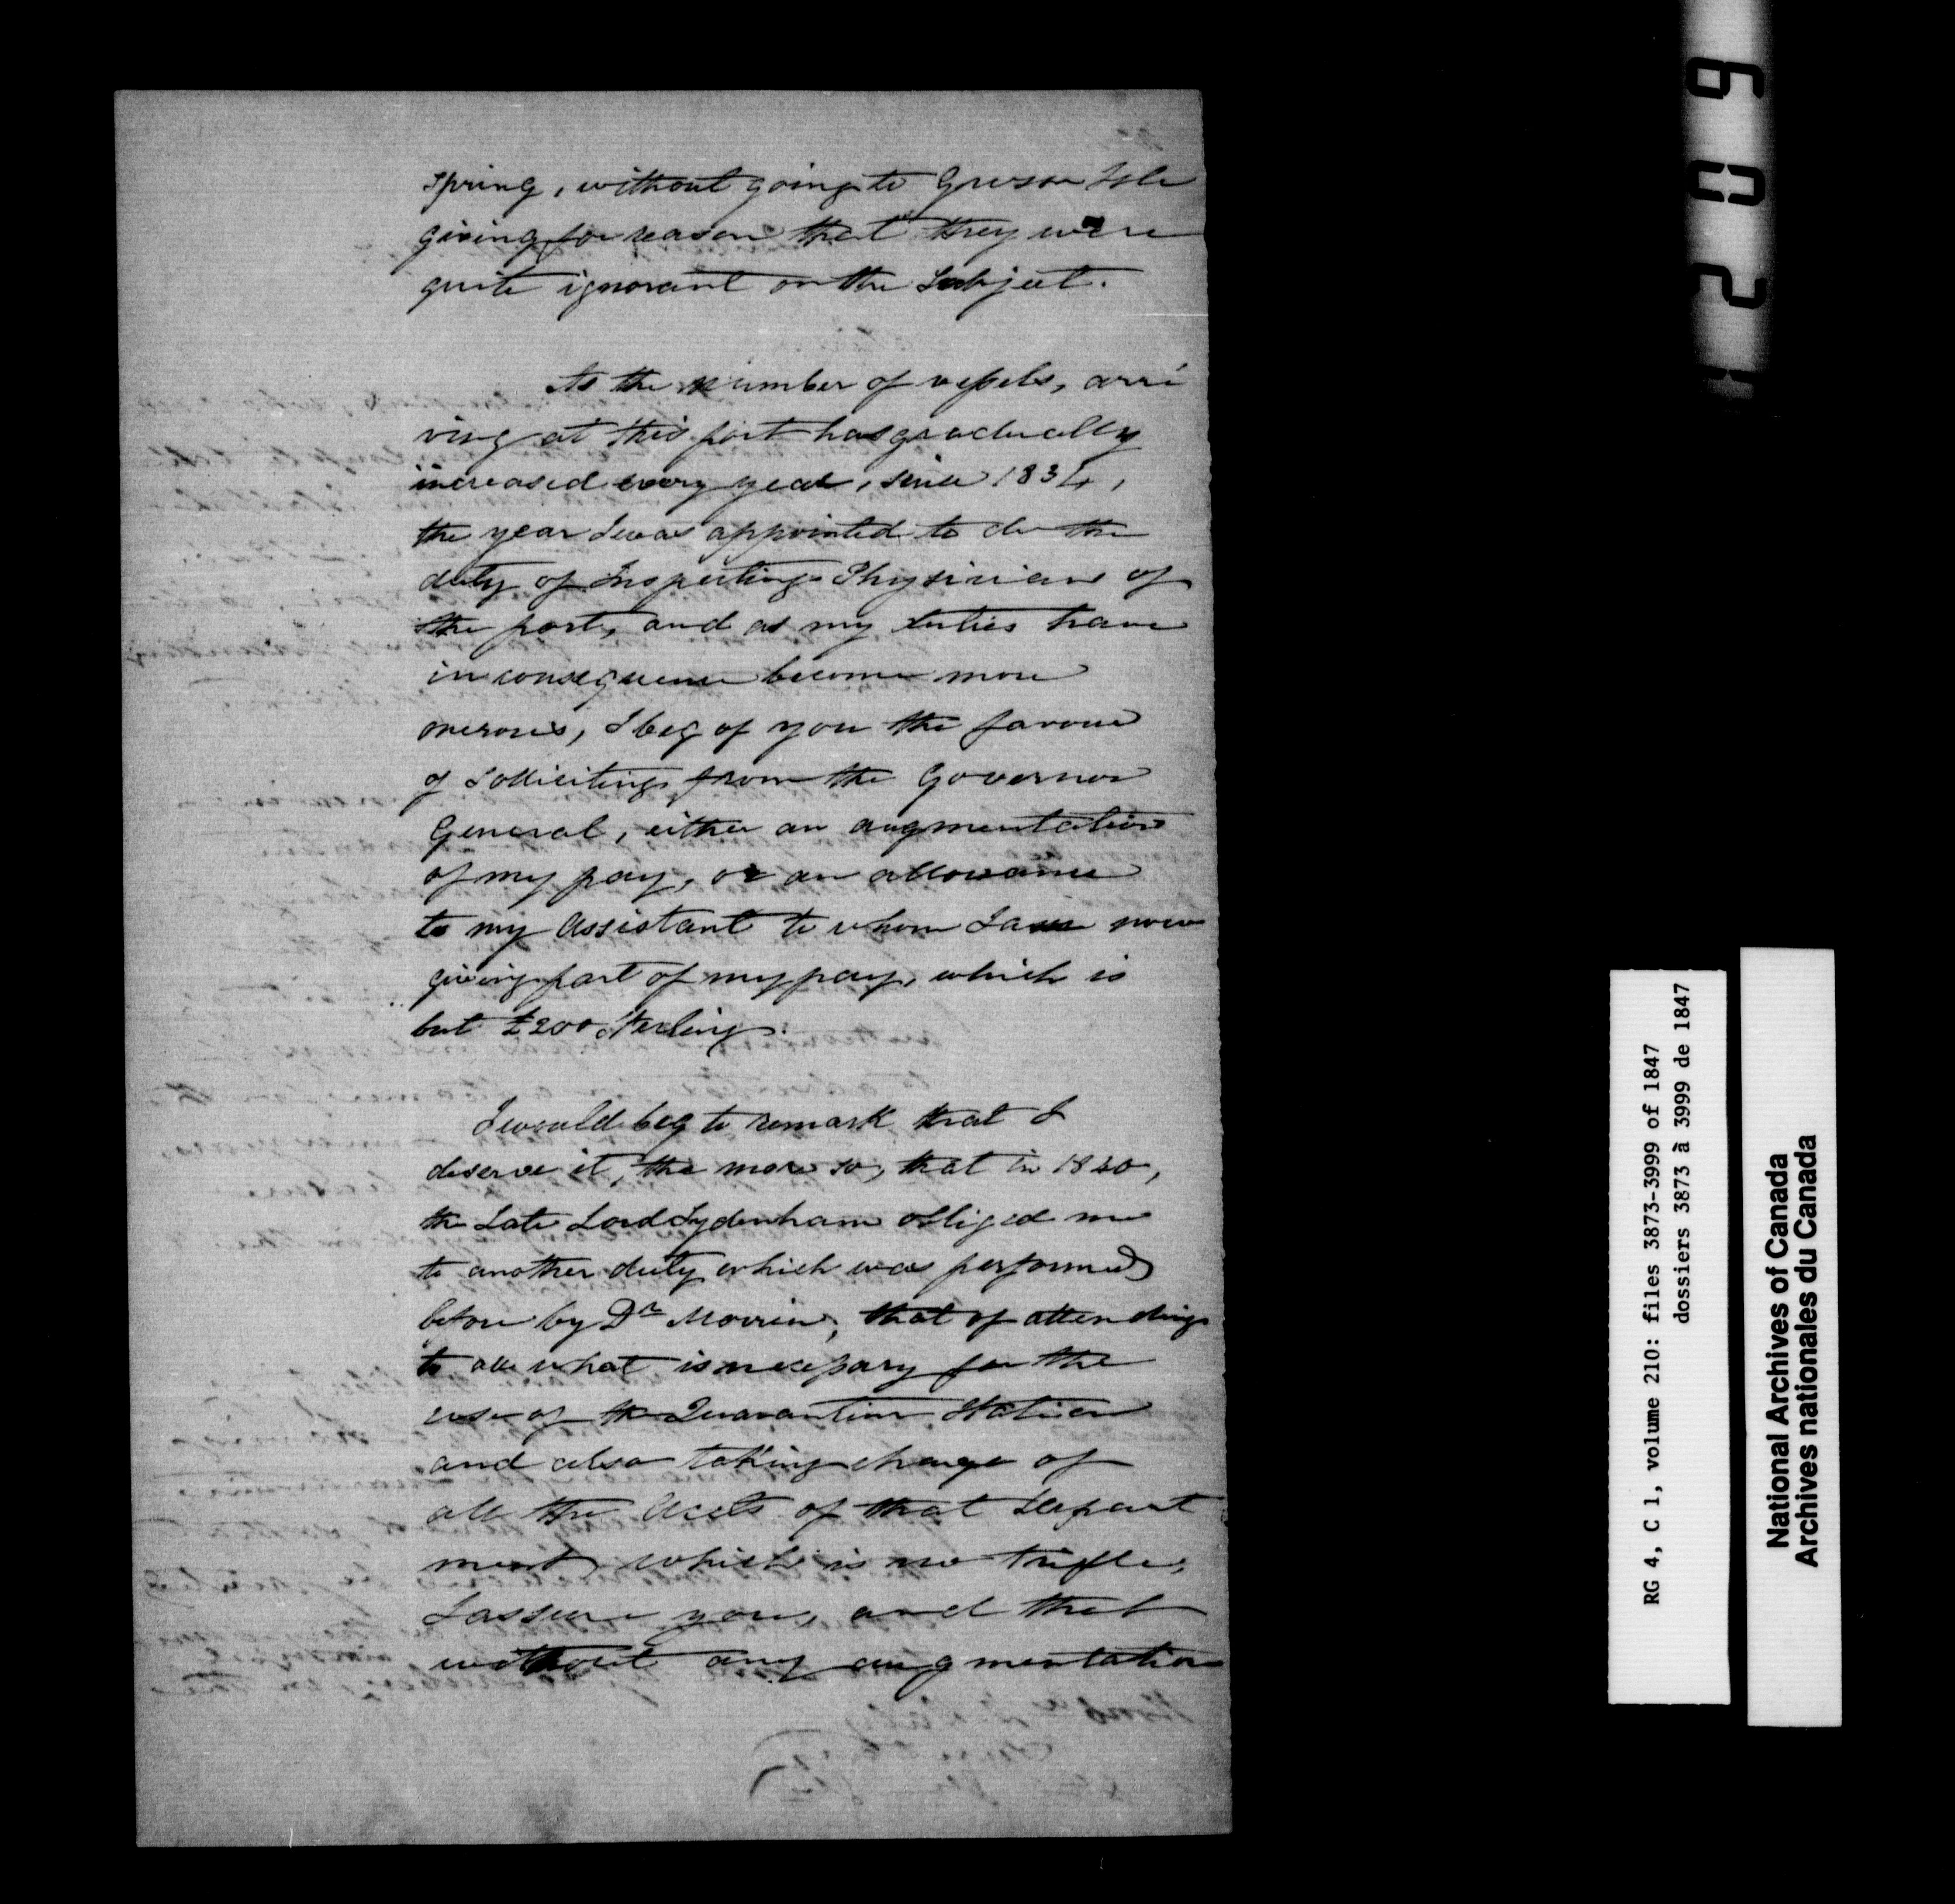 spring, without going to Grosse Isle
giving for reason that they were
quite ignorant on the subject.
As the number of vessels, arri
ving at this port has gradually
increased every year, since 1834,
the year I was appointed to do the
duty of Inspecting Physician of
the port, and as my duties have
in consequence become more
onerous, I beg of you the favour
of solliciting from the Governor
General, either an augmentation
of my pay, or an allowance
to my assistant to whom I am now
giving part of my pay, which is
but £200 Sterling.
I would beg to remark that I
deserve it, the more so, that in 1840,
the Late Lord Sydenham obliged me
to another duty which was performed
before by Dr Morrin, that of attending
to all what is necessary for the
use of the Quarantine Station
and also taking charge of
all the Accts of that Depart
ment, which is no trifle,
I assure you, and that
without any augmentation
1209
RG 4, C 1, volume 210: files 3873-3999 of 1847
dossiers 3873 à 3999 de 1847
National Archives of Canada
Archives nationales du Canada